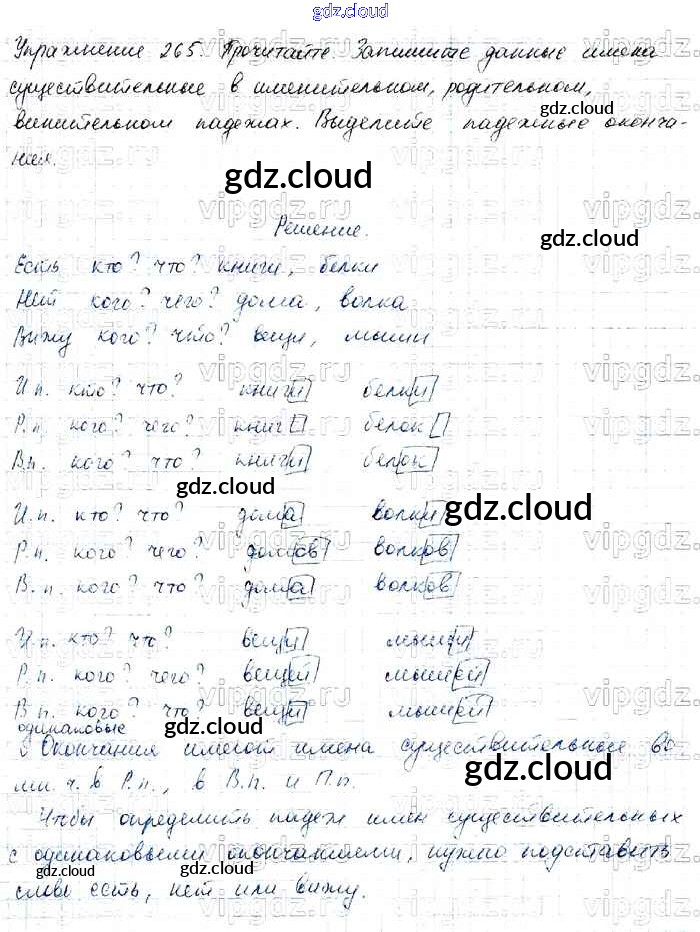 gdz.cloud
Упражнение 265. Прочитайте. Запишите данные имена
существительные в именительном, родительном,
винительном падежах. Выделите падежные оконча-
ния.
gdz.cloud
gdz.cloud
Решение.
gdz.cloud
Есть кто? что? книги, белки
Нет кого? чего? дома, волка
Вижу кого? что? вещи, мыши
И.п. кто? что? книги белки
Р.п. кого? чего? книг белок
В.п. кого? что? книги белок
gdz.cloud
gdz.cloud
И.п. кто? что? дома волки
Р.п. кого? чего? домов волков
В.п. кого? что? дома волков
И.п. кто? что? вещи мыши
Р.п. кого? чего? вещей мышей
В.п. кого? что? вещи мышей
одинаковые gdz.cloud
Окончания имеют имена существительные во
мн. ч. в Р.п., в В.п. и П.п.
gdz.cloud
Чтобы определить падеж имен существительных
с одинаковыми окончаниями, нужно подставить
слова есть, нет или вижу.
gdz.cloud
gdz.cloud
vipgdz.ru